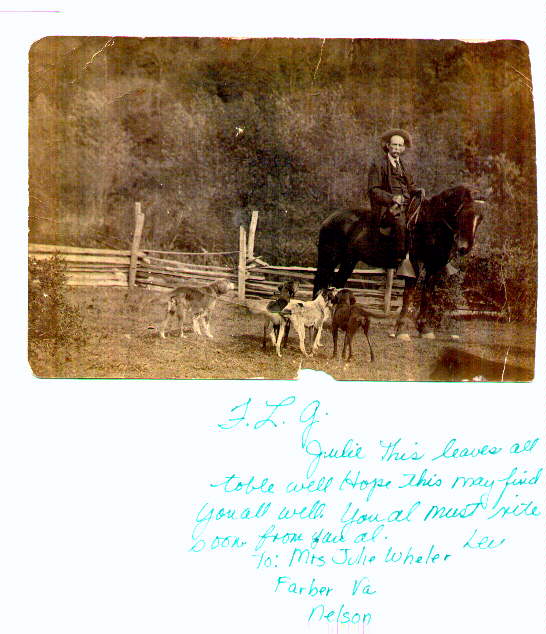 F. L. G.
Julie This leaves all
toble well Hope This may find
you all well. You al must rite
soon from you al. Lee
To: Mrs Julie Wheler
Farber Va
Nelson